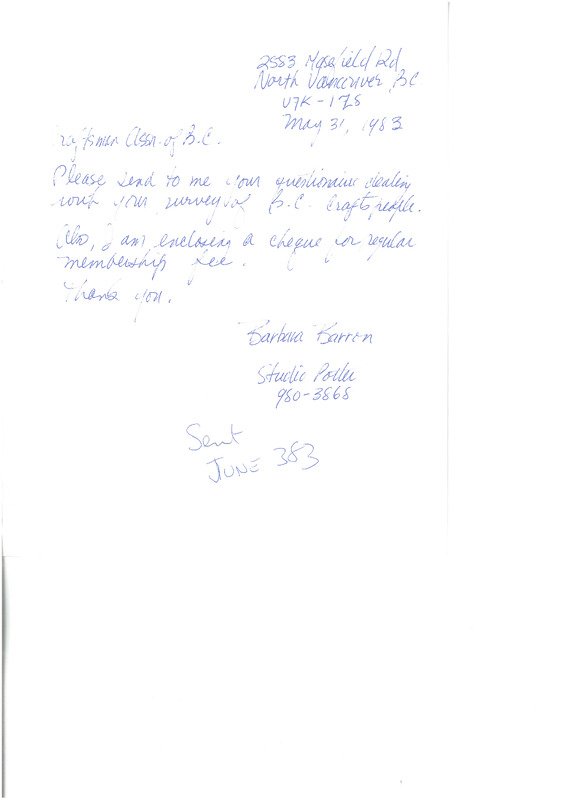 2553 Masefield Rd
North Vancouver, BC
V7K-1Z8
May 31, 1983
Craftsman Assn. of B.C.
Please send to me your questionnaire dealing
with your survey of B.C. Crafts people.
Also, I am enclosing a cheque for regular
membership fee.
Thank you.
Barbara Barron
Studio Potter
980-3868
Sent
JUNE 3 83